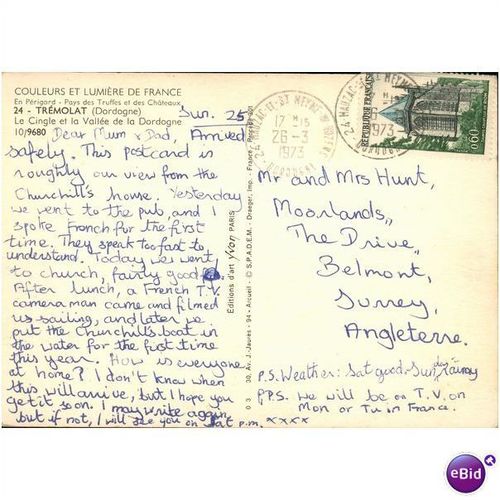 COULEURS ET LUMIÈRE DE FRANCE
En Périgord - Pays des Truffes et des Châteaux
24 - TRÉMOLAT (Dordogne)
Le Cingle et la Vallée de la Dordogne
10/9680
Sun. 25
Dear Mum & Dad, Arrived
safely. This postcard is
roughly our view from the
Churchill's house. Yesterday
we went to the pub, and I
spoke French for the first
time. They speak too fast to
understand. Today we went
to church, fairly good.
After lunch, a French T.V.
camera man came and filmed
us sailing, and later we
put the Churchill's boat in
the water for the first time
this year. How is everyone
at home? I don't know when
this will arrive, but I hope you
get it soon. I may write again
but if not, I will see you on Sat p.m. xxxx
Editions d'art Yvon PARIS
0 3 30, Av. J.-Jaurès - 94 - Arcueil - © S.P.A.D.E.M. - Draeger, Imp. - France
17 H 15
26-3
1973
24 MAUZAC
DORDOGNE
1973
REPUBLIQUE FRANÇAISE
1,00
Mr and Mrs Hunt,
Moorlands,
The Drive,
Belmont,
Surrey,
Angleterre.
P.S. Weather: Sat good, Sunday rainy
P.P.S. We will be on T.V. on
Mon or Tu in France.
eBid